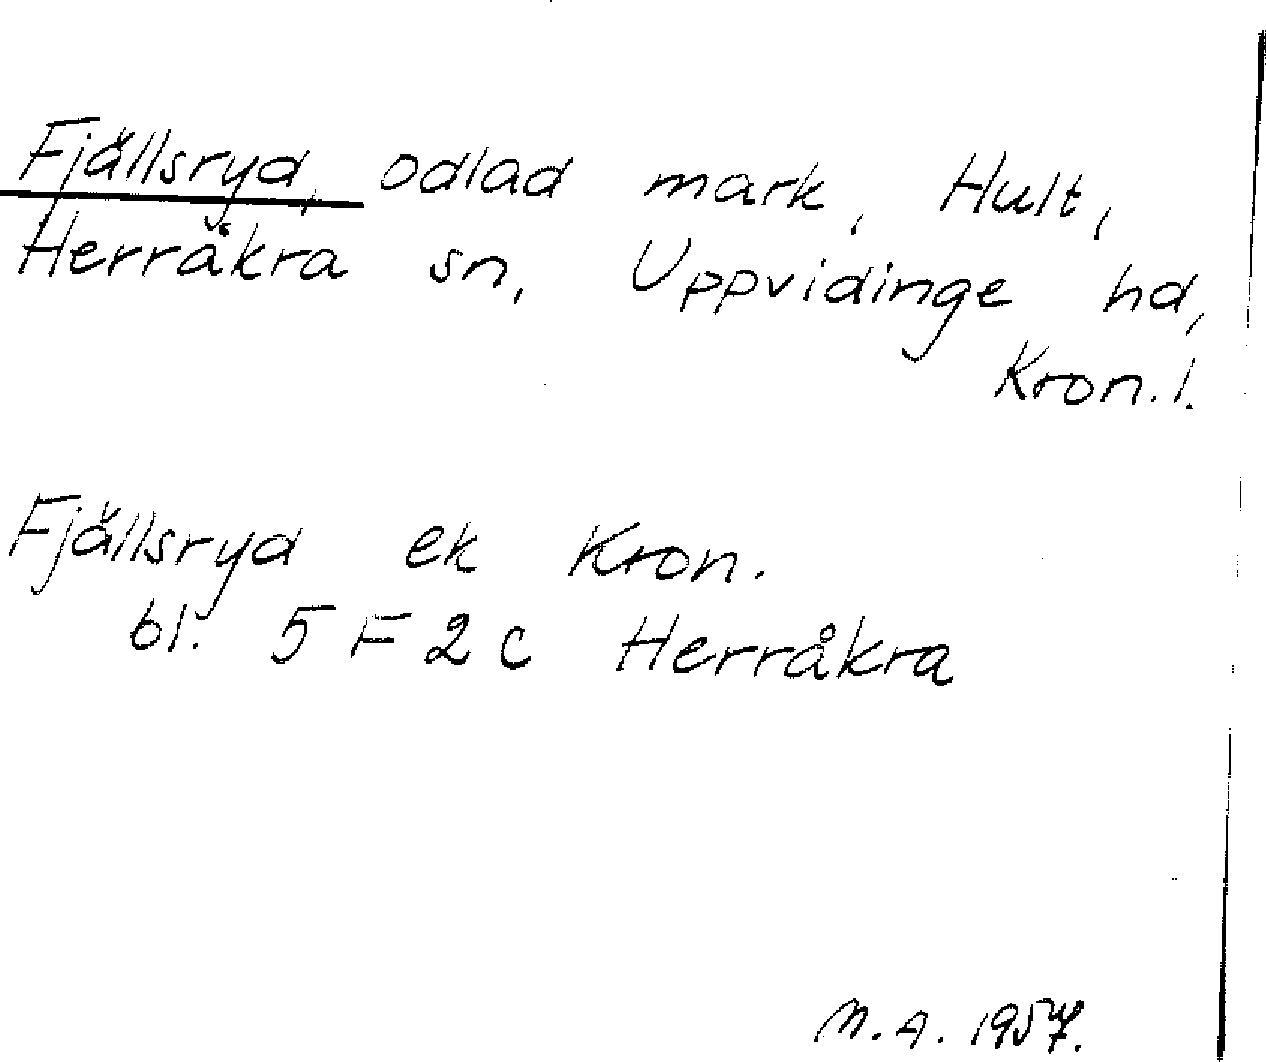 Fjällsryd, odlad mark, Hult,
Herråkra sn, Uppvidinge hd,
Kron. l.
Fjällsryd ek Kron.
bl. 5 F 2 c Herråkra
N. A. 1957.